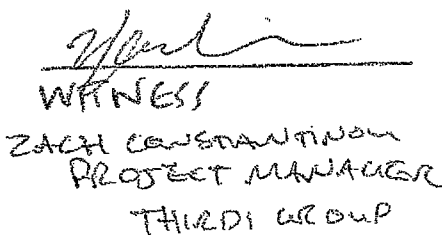 WITNESS
ZACH CONSTANTINOU
PROJECT MANAGER
THIRDI GROUP